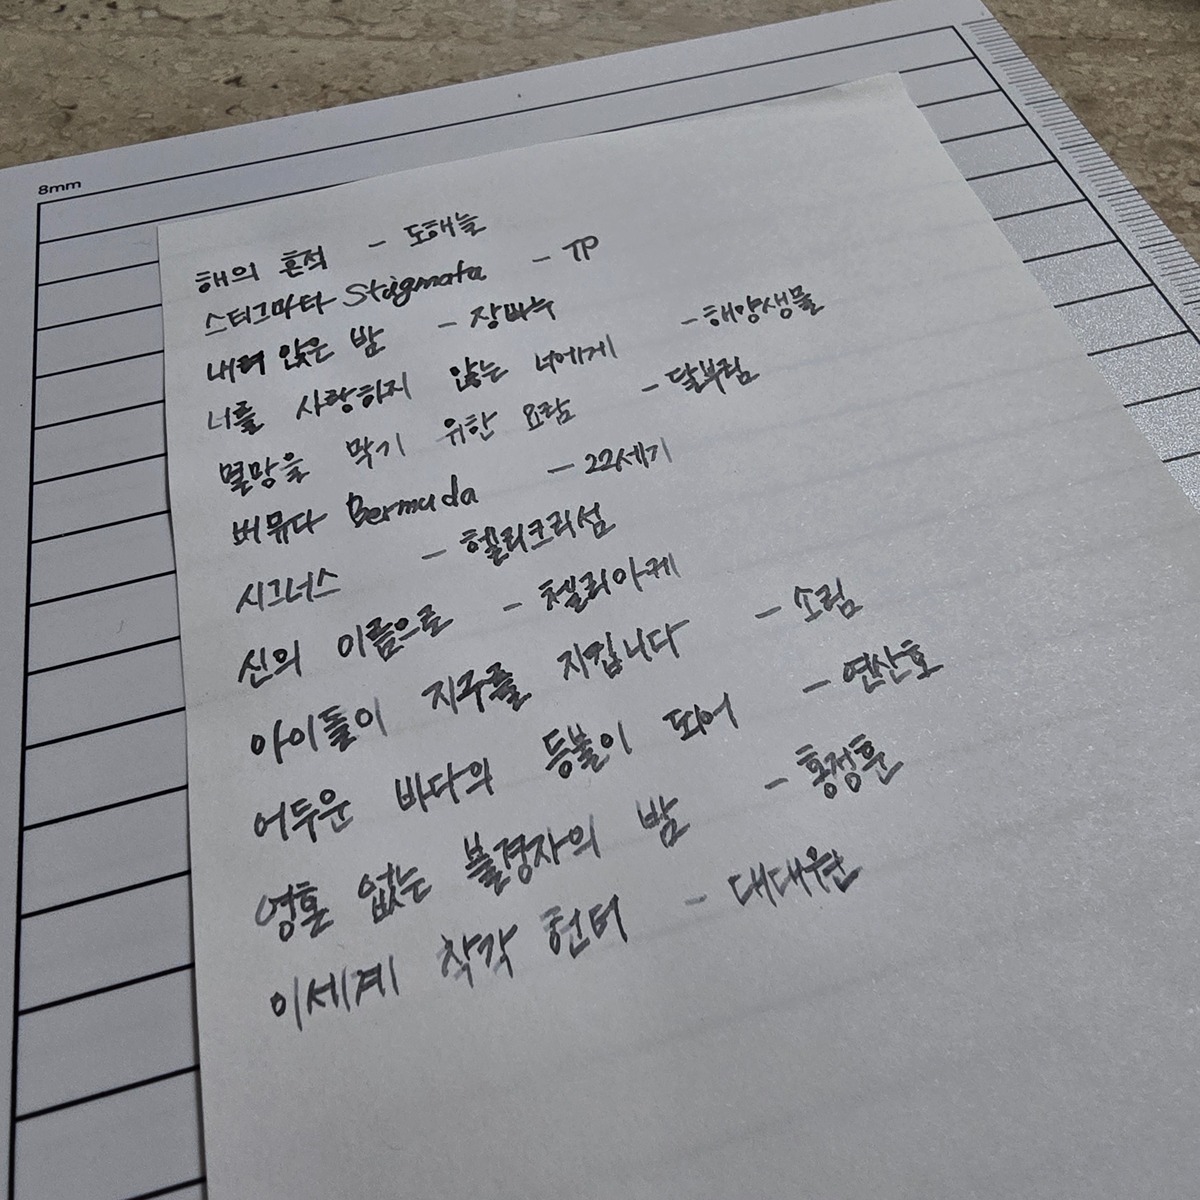 8mm
해의 흔적 - 도해늘
스티그마타 Stigmata - TP
내려 앉은 밤 - 장바누
너를 사랑하지 않는 너에게 - 해양생물
멸망을 막기 위한 요람 - 달부림
버뮤다 Bermuda - 22세기
시그너스 - 헬리크리섬
신의 이름으로 - 첼리아케
아이돌이 지구를 지킵니다 - 소림
어두운 바다의 등불이 되어 - 연산호
영혼 없는 불경자의 밤 - 홍정훈
이세계 착각 헌터 - 대대원